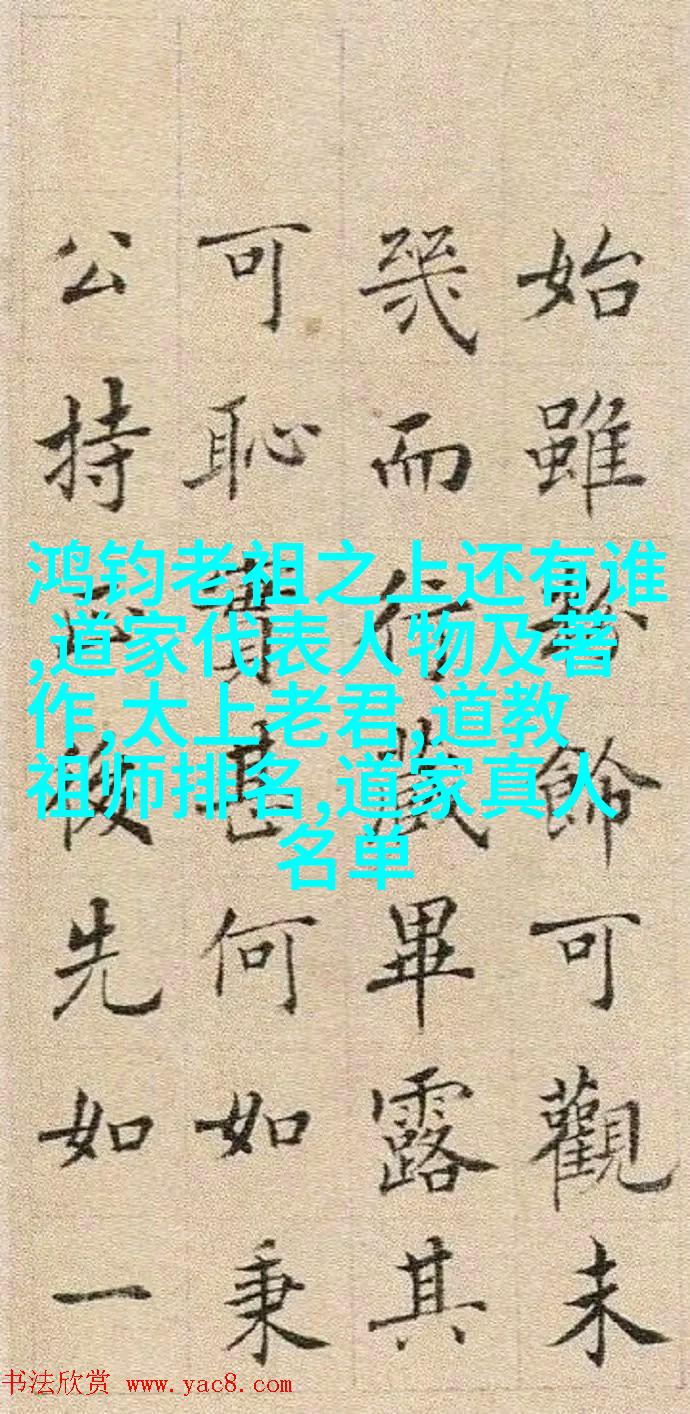 始雖飾可觀未
幾而行藏畢露其
可恥實甚何如秉
公持後先如一
鸿钧老祖之上还有谁
,道家代表人物及著
作,太上老君,道教
祖师排名,道家真人
名单
书法欣赏 www.yac8.com